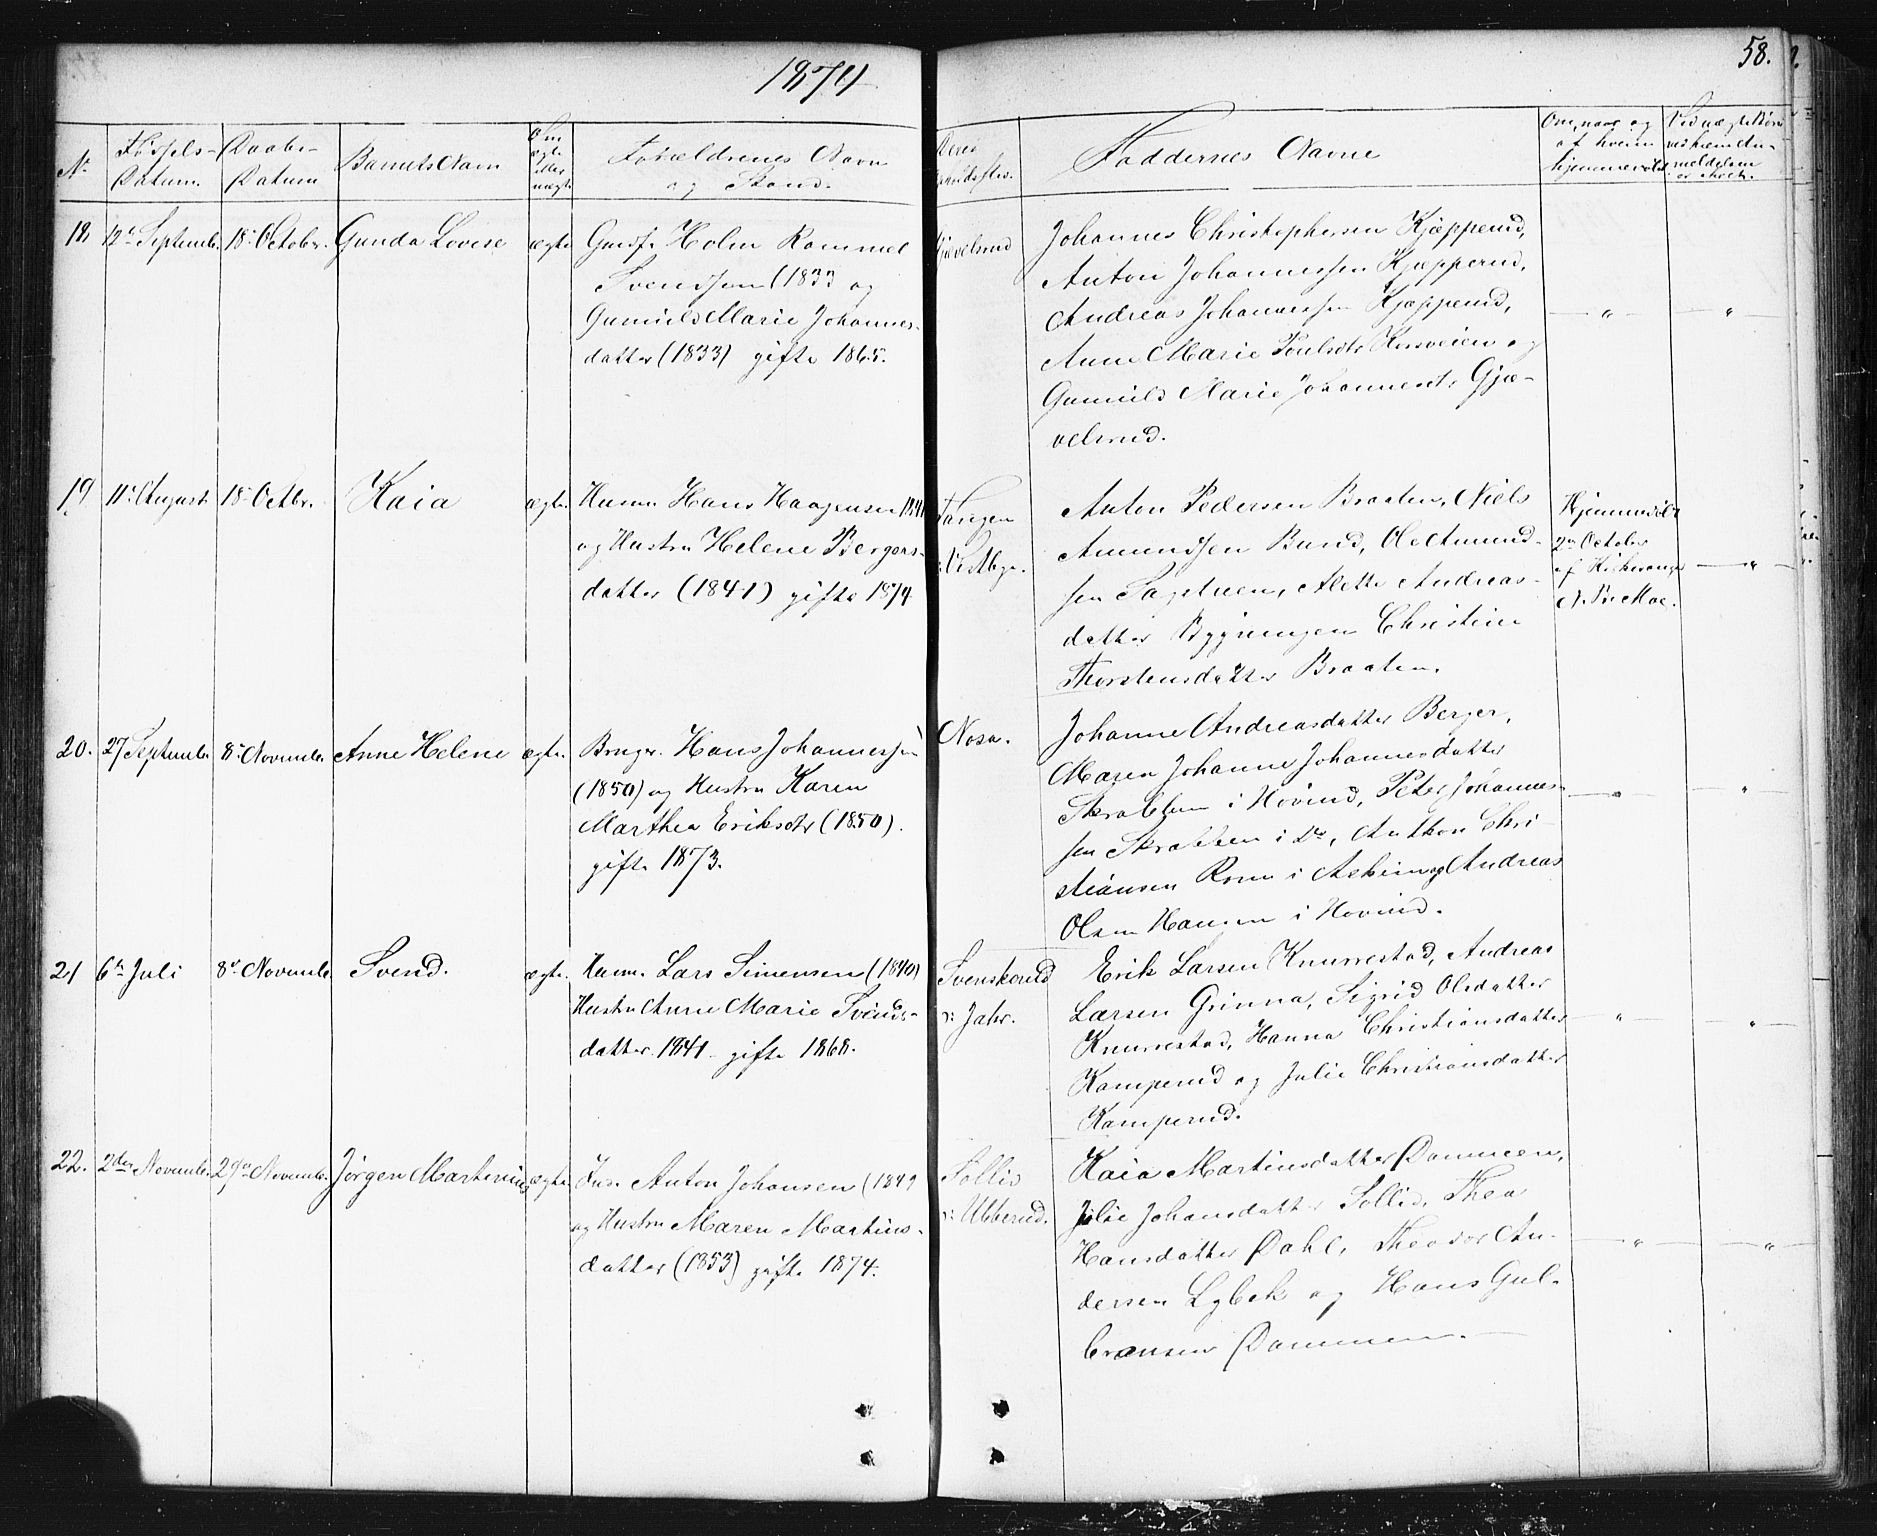 1874
58.
No
Fødsels-
Datum.
Daabs-
Datum
Barnets Navn
Om
ægte
eller
uægte
Forældrenes Navn
og Stand.
Deres
Opholdssted.
Faddernes Navne
Om, naar og
af hvem
hjemmedøbt.
Ved uægte Børn
meldelsen
er skeet.
18. 12te Septemb. 18de Octobr. Gunda Lovise ægte
Gaardf. Holm Rommel
Svendsen (1833 og
Gunnild Marie Johannes-
datter (1833) gifte 1865.
Gjævelsrud
Johannes Christophersen Kjæpperud,
Anton Johannessen Kjæpperud,
Andreas Johannessen Kjæpperud,
Anne Marie Poulsdtr Korsveien og
Gunnild Marie Johannesdtr Gjæ-
velsrud.
19. 11te August 18de Octbr. Kaia ægte.
Husm. Hans Haagensen 1841
og Hustru Helene Bergers-
datter (1841) gifte 1874
Tangen
i Vestby.
Anton Pedersen Braaten, Niels
Amundsen Bund, Ole Amund-
sen Sagstuen, Alette Andreas-
datter Bygningen Christine
Thorstensdatter Braaten.
Hjemmedøbt
2den October
af Kirkesanger
N. P. Moe.
20. 27 Septemb. 8de Novemb. Anne Helene ægte.
Bruger. Hans Johannessen
(1850) og Hustru Karen
Marthea Eriksdtr (1850).
gifte 1873.
Nosa.
Johanne Andreasdatter Berger,
Maren Johanne Johannesdatter
Skrabben i Hovind, Peter Johannes-
sen Skrabben i Do, Anthon Chri-
stiansen Rom i Askim og Andreas
Olsen Haugen i Hovind.
21 6te Juli 8de Novemb. Svend. ægte.
Husm. Lars Simensen (1840)
Hustru Anne Marie Svends-
datter 1841 gifte 1868.
Svenskerud
i Jahr.
Erik Larsen Knurrestad, Andreas
Larsen Grinna, Sigrid Olsdatter
Knurrestad, Hanna Christiansdatter
Kamperud og Julie Christiansdatter
Kamperud.
22. 2den Novemb. 29de Novemb. Jørgen Martinius ægte
Ins. Anton Johansen (1849
og Hustru Maren Martins-
datter (1853) gifte 1874.
Sollid
i Ubberud.
Kaia Martinsdatter Dammen,
Julie Johansdatter Sollid, Thea
Hansdatter Dahl, Theodor An-
dersen Lybek og Hans Gul-
bransen Dammen.